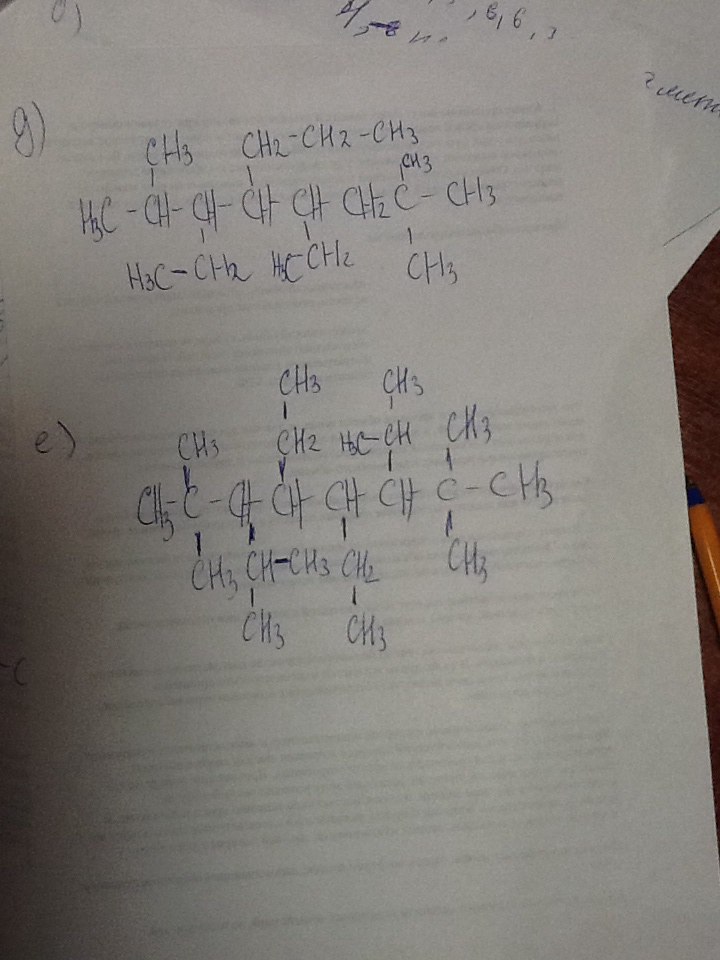 д)
CH3 CH2-CH2-CH3
CH3
H3C-CH-CH-CH CH CH2 C-CH3
H3C-CH2 H3C CH2 CH3
CH3 CH3
е) CH3 CH2 H3C-CH CH3
CH3-C-CH CH CH CH C-CH3
CH3 CH-CH3 CH2 CH3
CH3 CH3